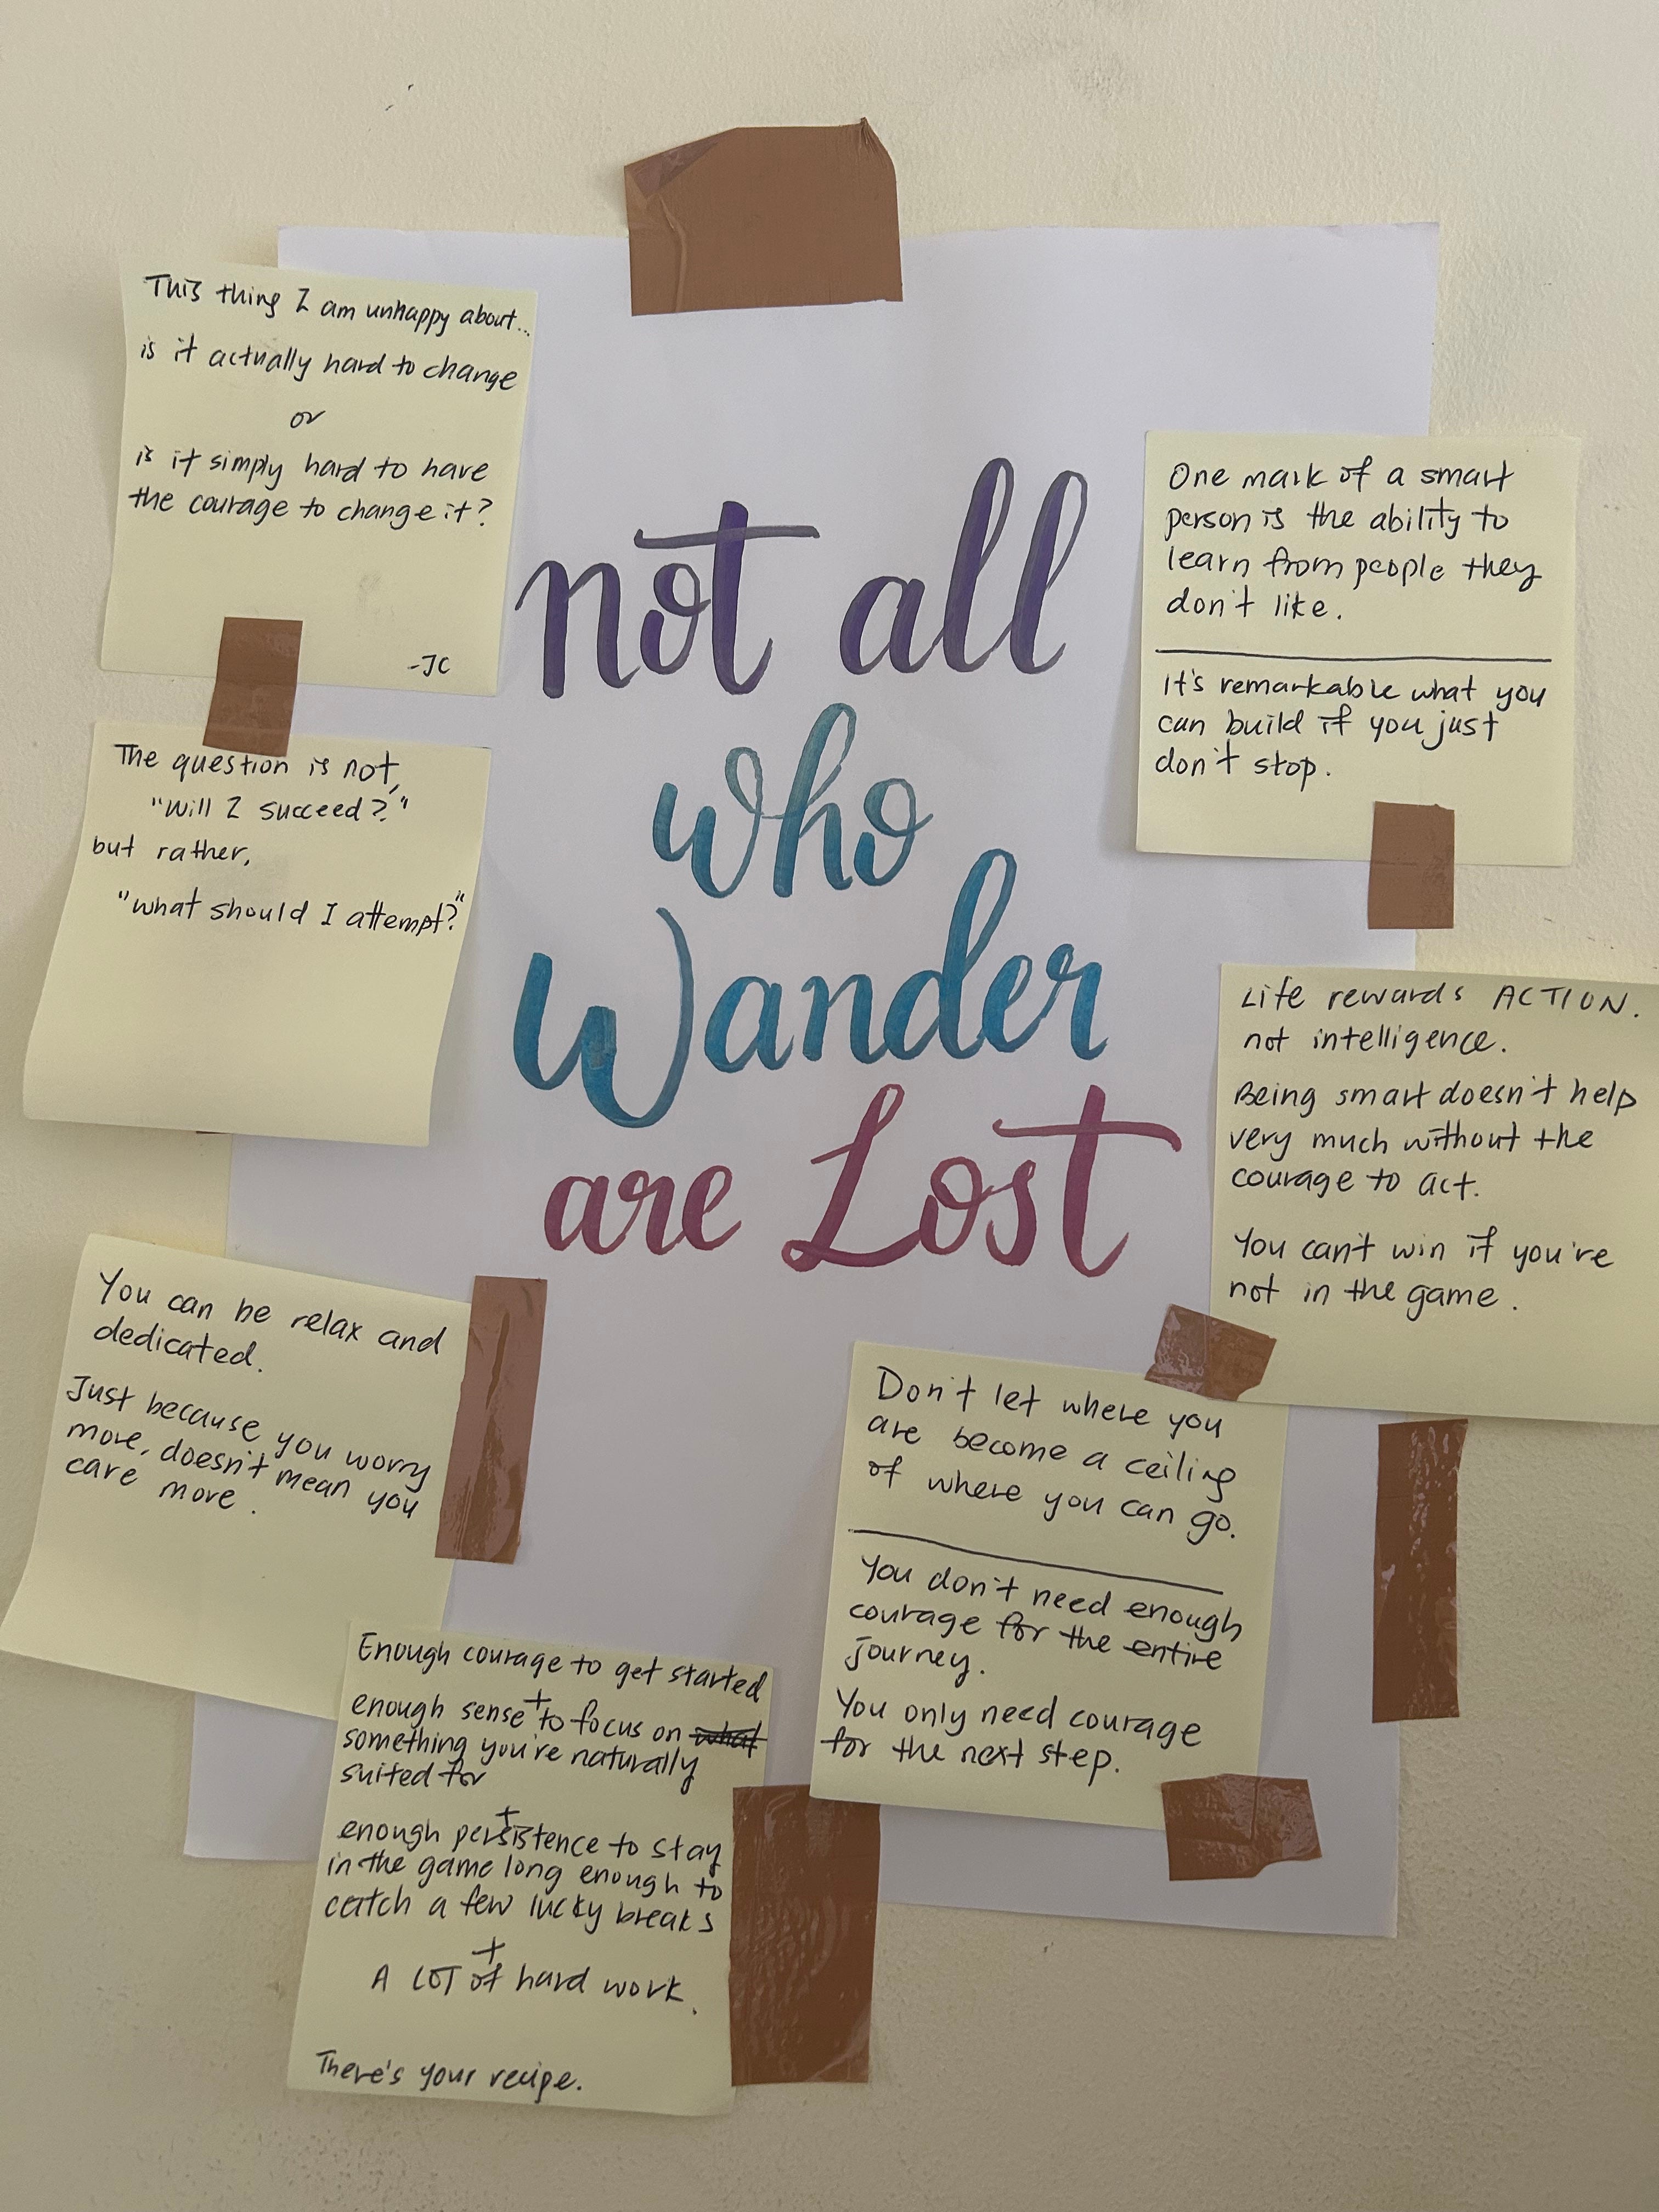 This thing I am unhappy about...
is it actually hard to change
or
is it simply hard to have
the courage to change it?
-JC
The question is not,
"Will I succeed?"
but rather,
"what should I attempt?"
You can be relax and
dedicated.
Just because you worry
more, doesn't mean you
care more.
Enough courage to get started
+
enough sense to focus on what
something you're naturally
suited for
+
enough persistence to stay
in the game long enough to
catch a few lucky breaks
+
A LOT of hard work.
There's your recipe.
not all
who
Wander
are Lost
One mark of a smart
person is the ability to
learn from people they
don't like.
It's remarkable what you
can build if you just
don't stop.
Life rewards ACTION.
not intelligence.
Being smart doesn't help
very much without the
courage to act.
You can't win if you're
not in the game.
Don't let where you
are become a ceiling
of where you can go.
You don't need enough
courage for the entire
journey.
You only need courage
for the next step.